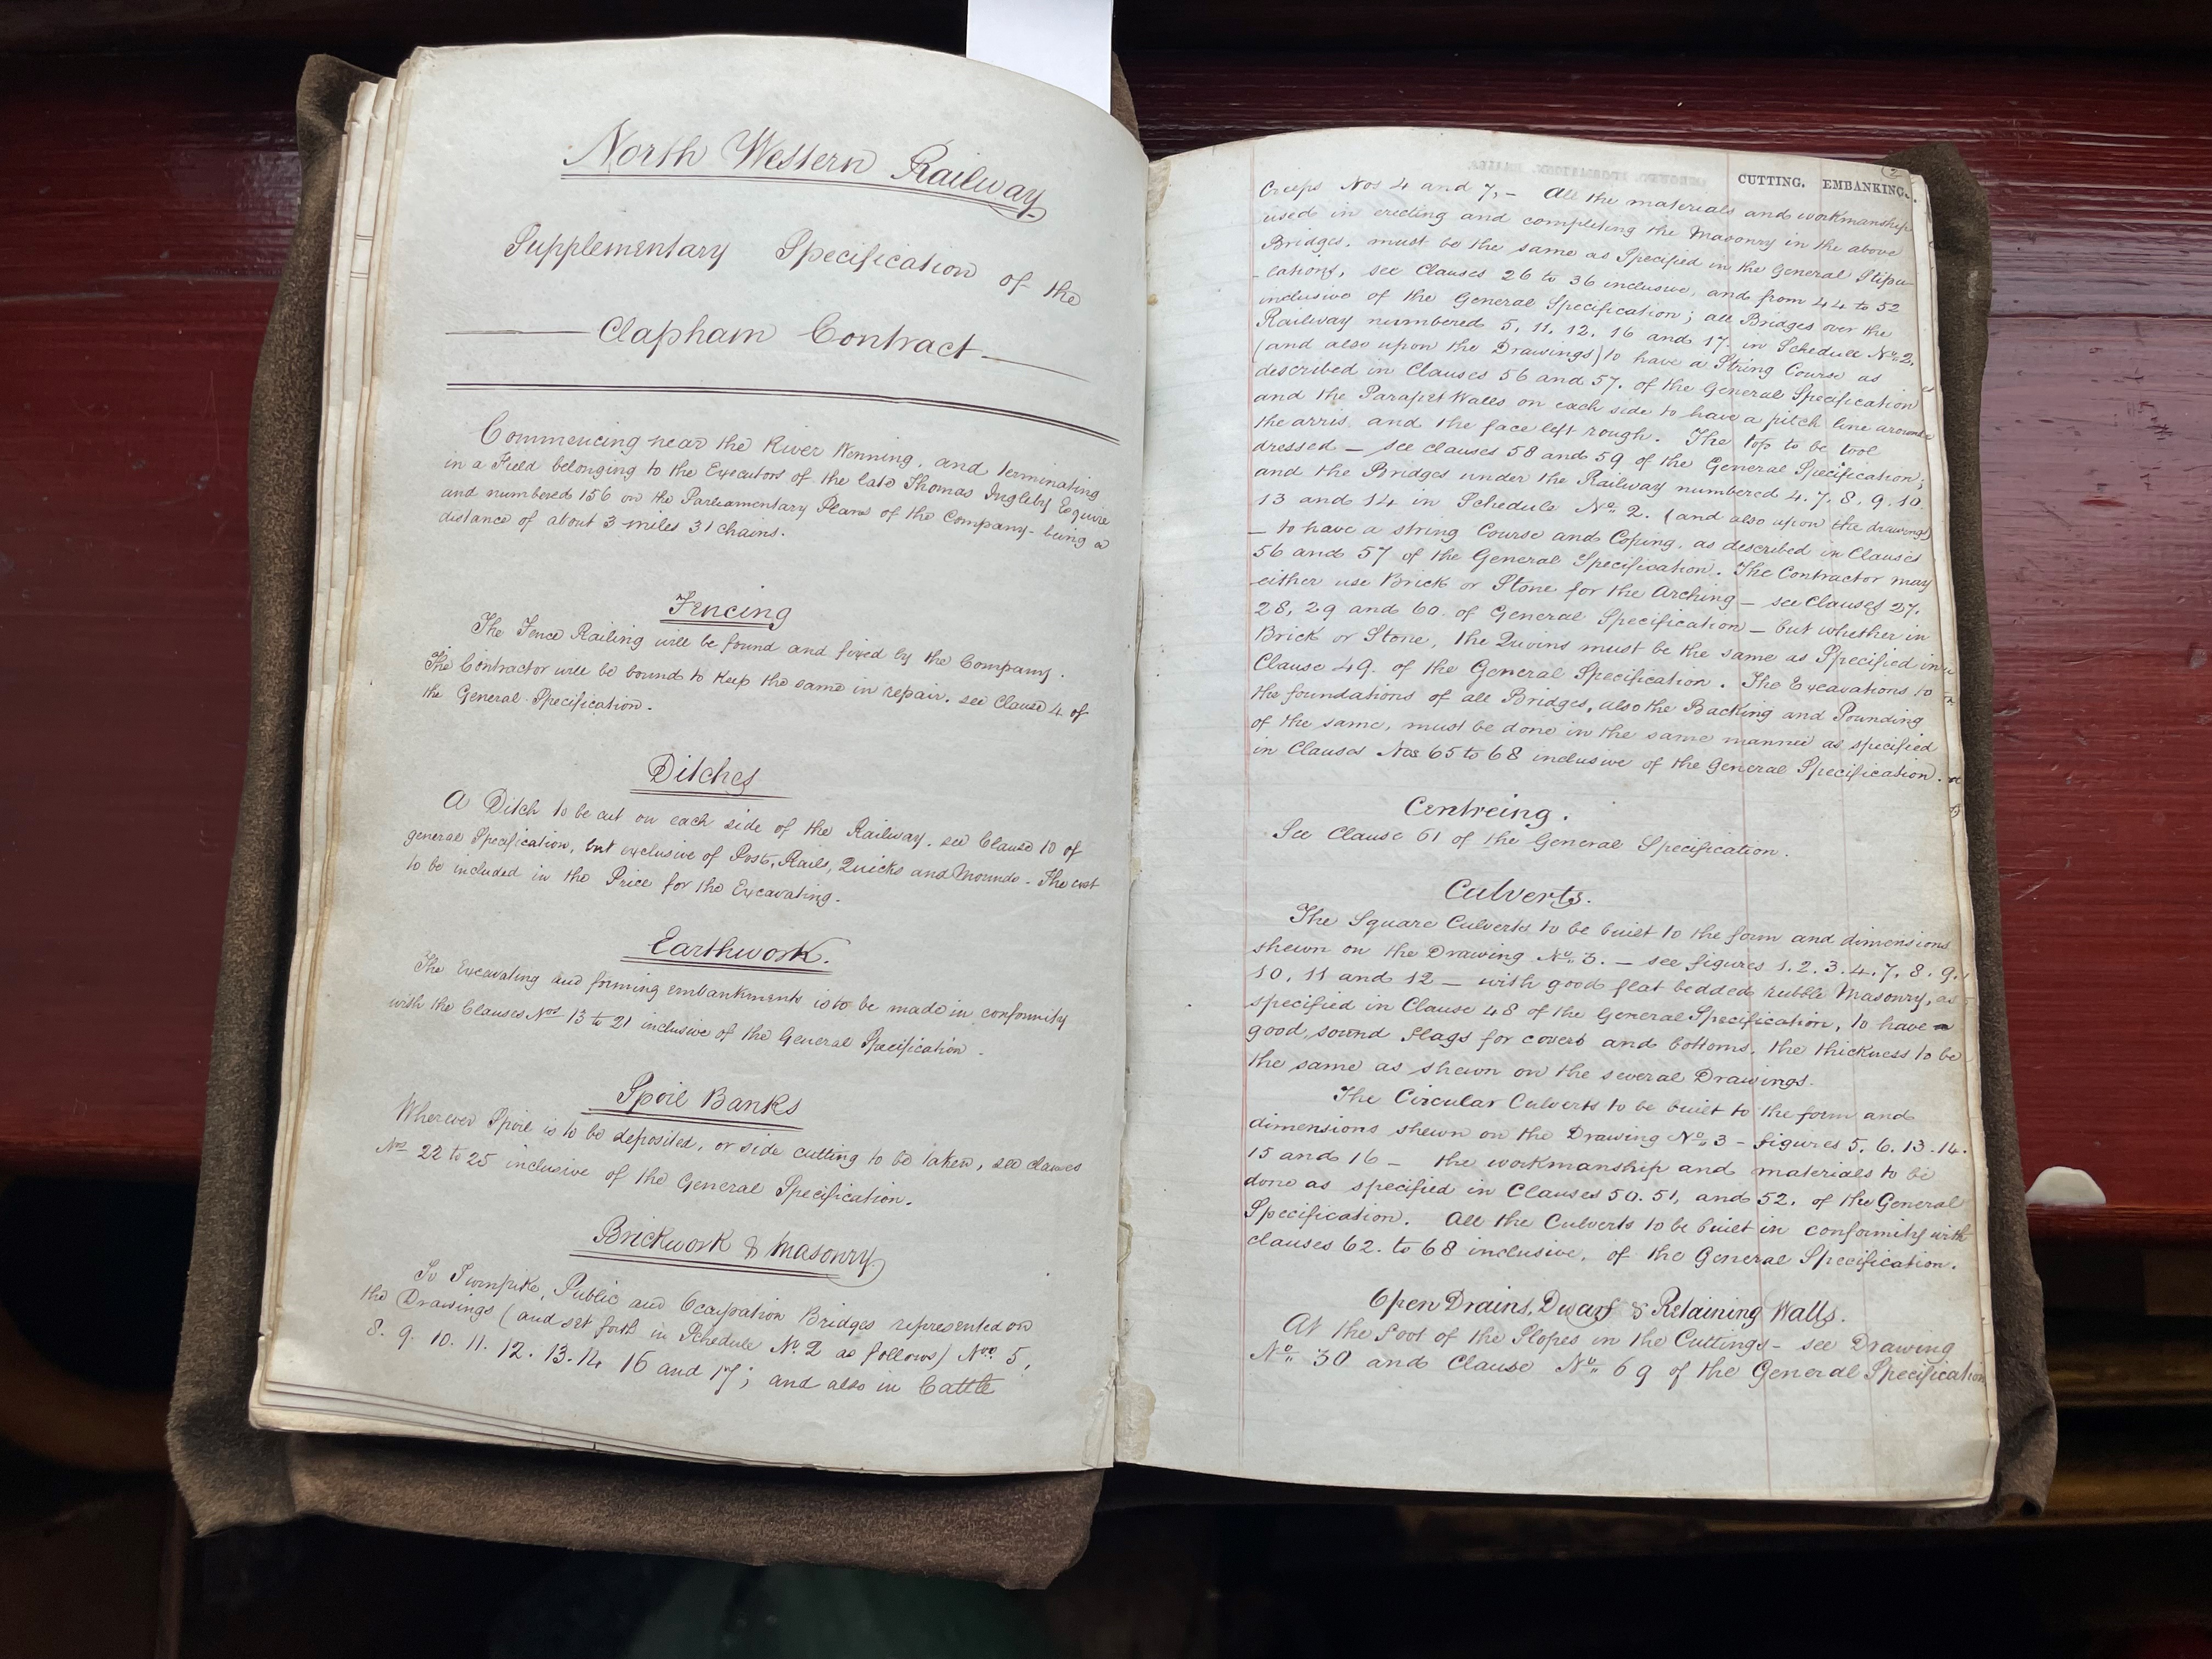 North Western Railway
Supplementary Specification of the
Clapham Contract
Commencing near the River Wenning, and terminating
in a Field belonging to the Executors of the late Thomas Ingleby Esquire
and numbered 156 on the Parliamentary Plans of the Company - being a
distance of about 3 miles 31 chains.
Fencing
The Fence Railing will be found and fixed by the Company.
The Contractor will be bound to keep the same in repair. see Clause 4 of
the General Specification.
Ditches
A Ditch to be cut on each side of the Railway, see Clause 10 of
general Specification, but exclusive of Posts, Rails, Quicks and Mounds - The cost
to be included in the Price for the Excavating.
Earthwork.
The Excavating and forming embankments is to be made in conformity
with the Clauses Nos. 13 to 21 inclusive of the General Specification.
Spoil Banks
Wherever Spoil is to be deposited, or side cutting to be taken, see clauses
Nos 22 to 25 inclusive of the General Specification.
Brickwork & Masonry
To Turnpike, Public and Occupation Bridges represented on
the Drawings (and set forth in Schedule No. 2 as follows) Nos. 5,
8. 9. 10. 11. 12. 13. 14 16 and 17; and also in Cattle
2
CUTTING. EMBANKING.
Creeps Nos 4 and 7, - All the materials and workmanship
used in erecting and completing the Masonry in the above
Bridges, must be the same as Specified in the General Stipu-
-lations, see Clauses 26 to 36 inclusive, and from 44 to 52
inclusive of the General Specification; all Bridges over the
Railway numbered 5, 11, 12, 16 and 17. in Schedule No. 2,
(and also upon the Drawings) to have a String Course as
described in Clauses 56 and 57. of the General Specification
and the Parapet Walls on each side to have a pitch line around
the arris, and the face left rough. The top to be tool
dressed - see clauses 58 and 59 of the General Specification;
and the Bridges under the Railway numbered 4. 7. 8. 9. 10
13 and 14 in Schedule No. 2. (and also upon the drawings)
- to have a string Course and Coping, as described in Clauses
56 and 57 of the General Specification. The Contractor may
either use Brick or Stone for the Arching - see Clauses 27.
28, 29 and 60. of General Specification - but whether in
Brick or Stone, the Quoins must be the same as Specified in
Clause 49. of the General Specification. The Excavations to
the foundations of all Bridges, also the Backing and Pounding
of the same, must be done in the same manner as specified
in Clauses Nos 65 to 68 inclusive of the General Specification.
Centreing.
See Clause 61 of the General Specification.
Culverts.
The Square Culverts to be built to the form and dimensions
shewn on the Drawing No. 3. - see figures 1. 2. 3. 4. 7. 8. 9.
10, 11 and 12 - with good flat bedded rubble Masonry, as
specified in Clause 48 of the General Specification, to have
good, sound Flags for covers and bottoms, the thickness to be
the same as shewn on the several Drawings.
The Circular Culverts to be built to the form and
dimensions shewn on the Drawing No. 3 - figures 5. 6. 13. 14.
15 and 16 - the workmanship and materials to be
done as specified in Clauses 50. 51, and 52, of the General
Specification. All the Culverts to be built in conformity with
clauses 62. to 68 inclusive, of the General Specification.
Open Drains, Dwarf & Retaining Walls.
At the foot of the Slopes in the Cuttings - see Drawing
No. 30 and Clause No. 69 of the General Specification